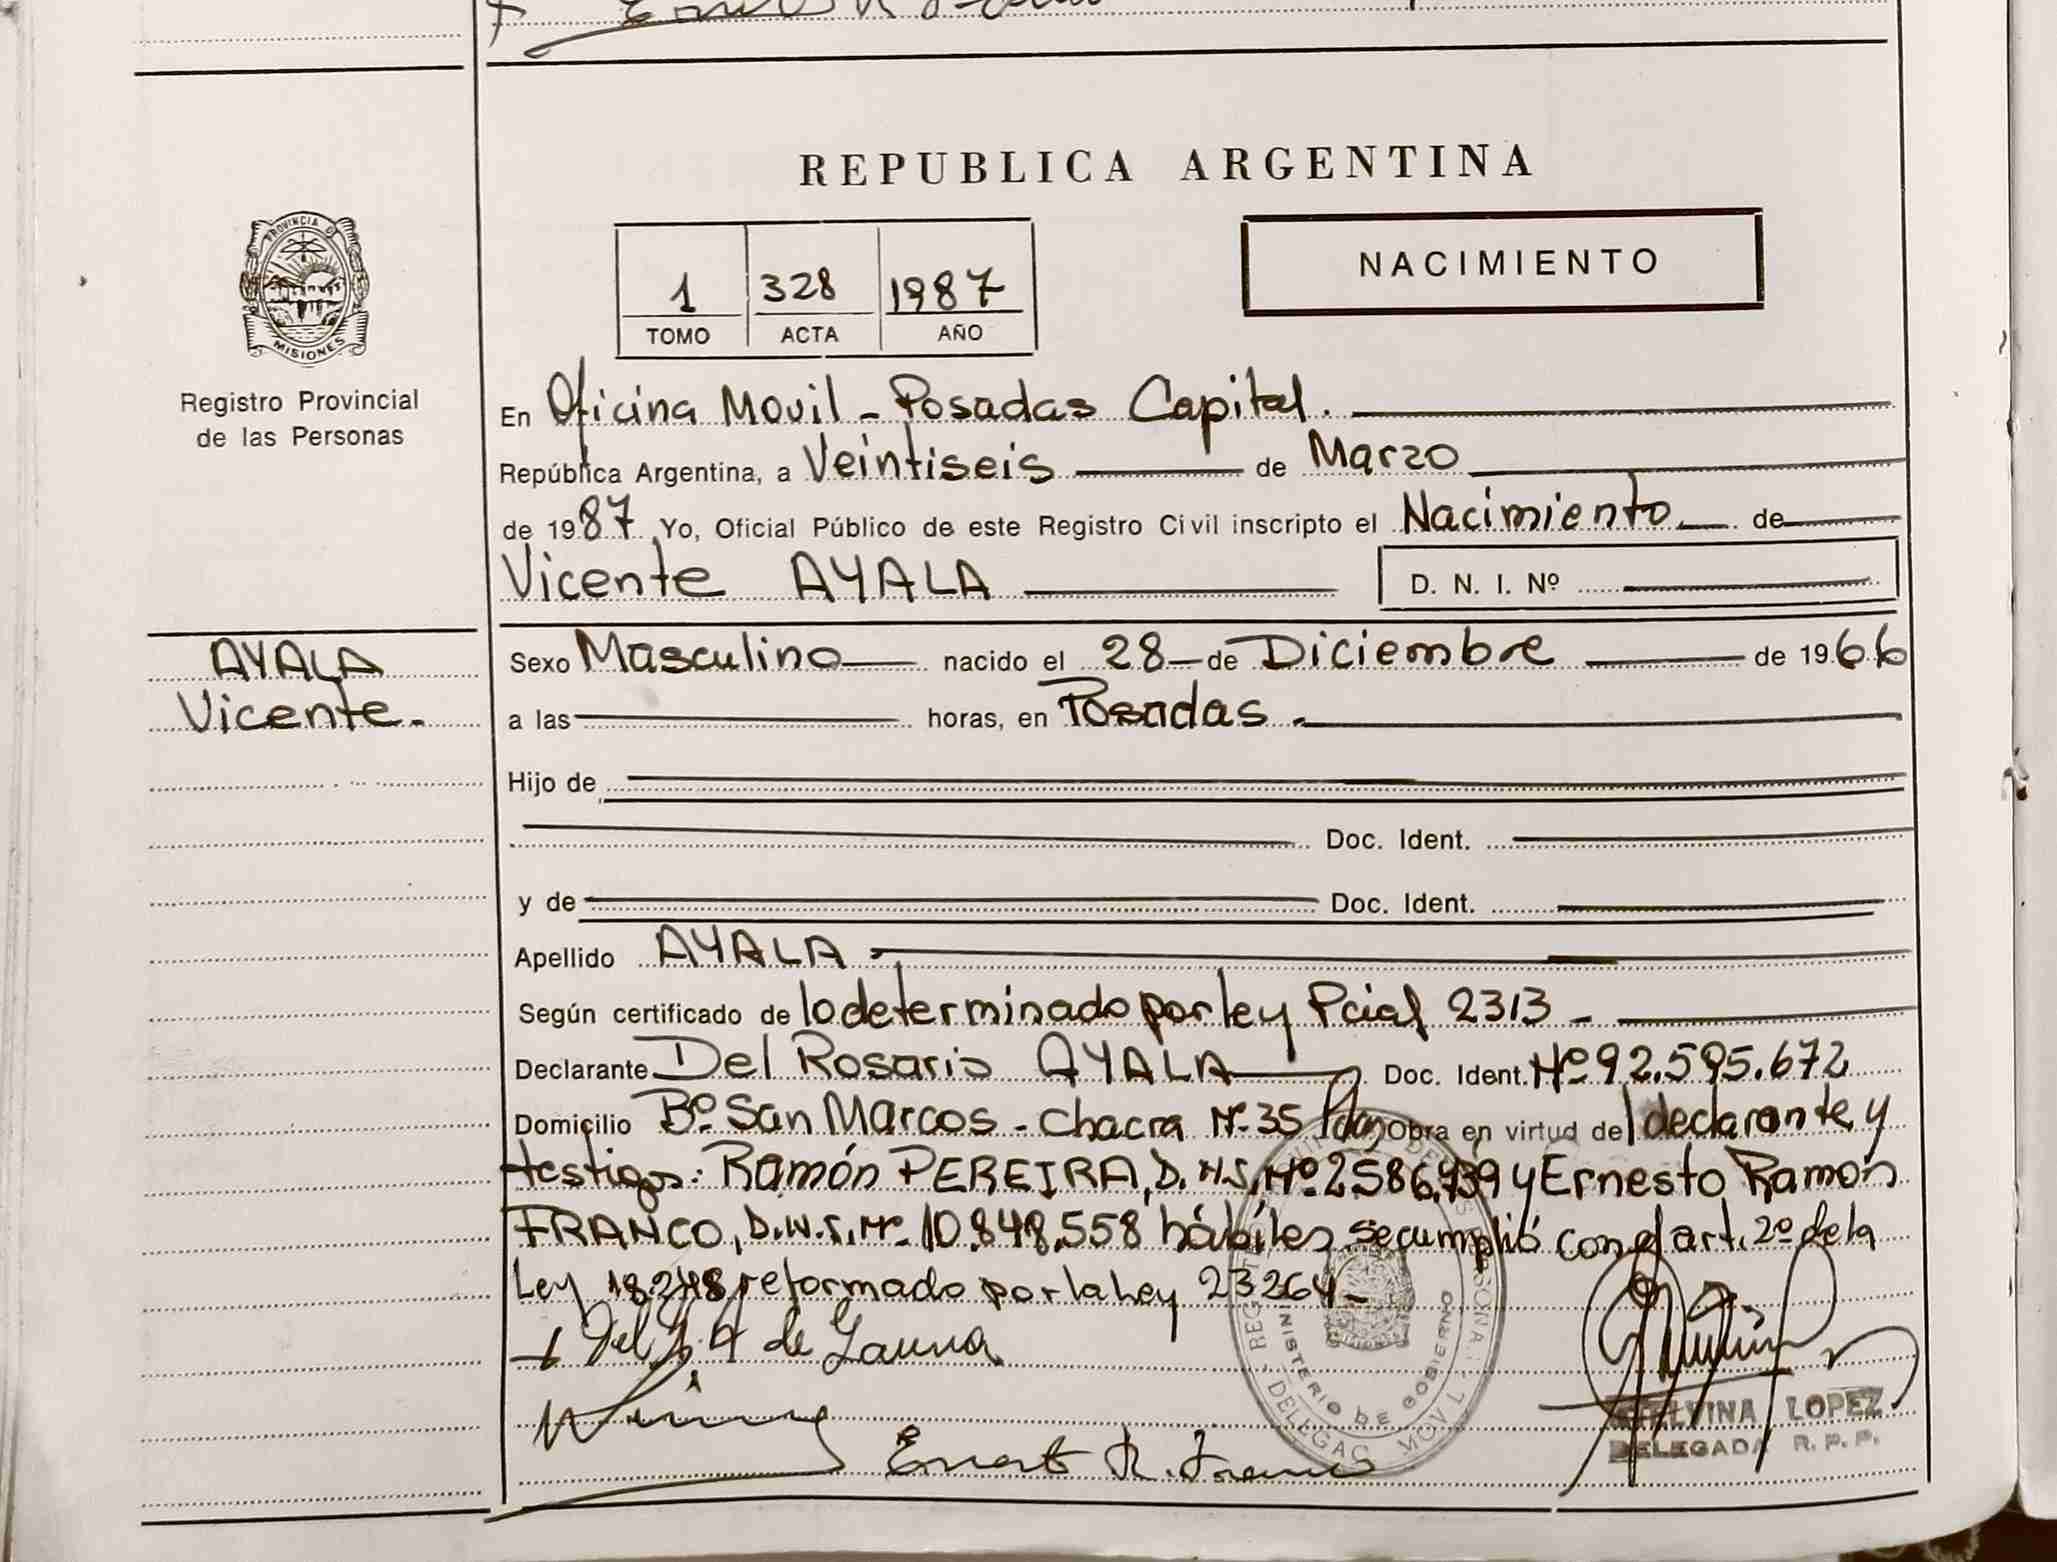 REPUBLICA ARGENTINA
PROVINCIA DE MISIONES
Registro Provincial
de las Personas
1 328 1987
TOMO ACTA AÑO
NACIMIENTO
En Oficina Movil - Posadas Capital.
República Argentina, a Veintiseis de Marzo
de 1987 Yo, Oficial Público de este Registro Civil inscripto el Nacimiento de
Vicente AYALA D. N. I. Nº
AYALA
Vicente.-
Sexo Masculino nacido el 28 de Diciembre de 1966
a las horas, en Posadas.
Hijo de
Doc. Ident.
y de Doc. Ident.
Apellido AYALA
Según certificado de lo determinado por ley Pcial 2313 -
Declarante Del Rosario AYALA Doc. Ident. Nº 92.595.672
Domicilio Bº San Marcos - Chacra Nº 35 Obra en virtud del declarante y
testigos: Ramón PEREIRA, D.N.I. Nº y Ernesto Ramón
FRANCO, D.N.I. Nº 10.848.558 hábiles se cumplió con el art. 2º de la
Ley 18248 reformado por la Ley 23264 -
Del de Gauna
Ernest R. Franco
MINISTERIO DE GOBIERNO
LOPEZ
DELEGADA R. P. P.